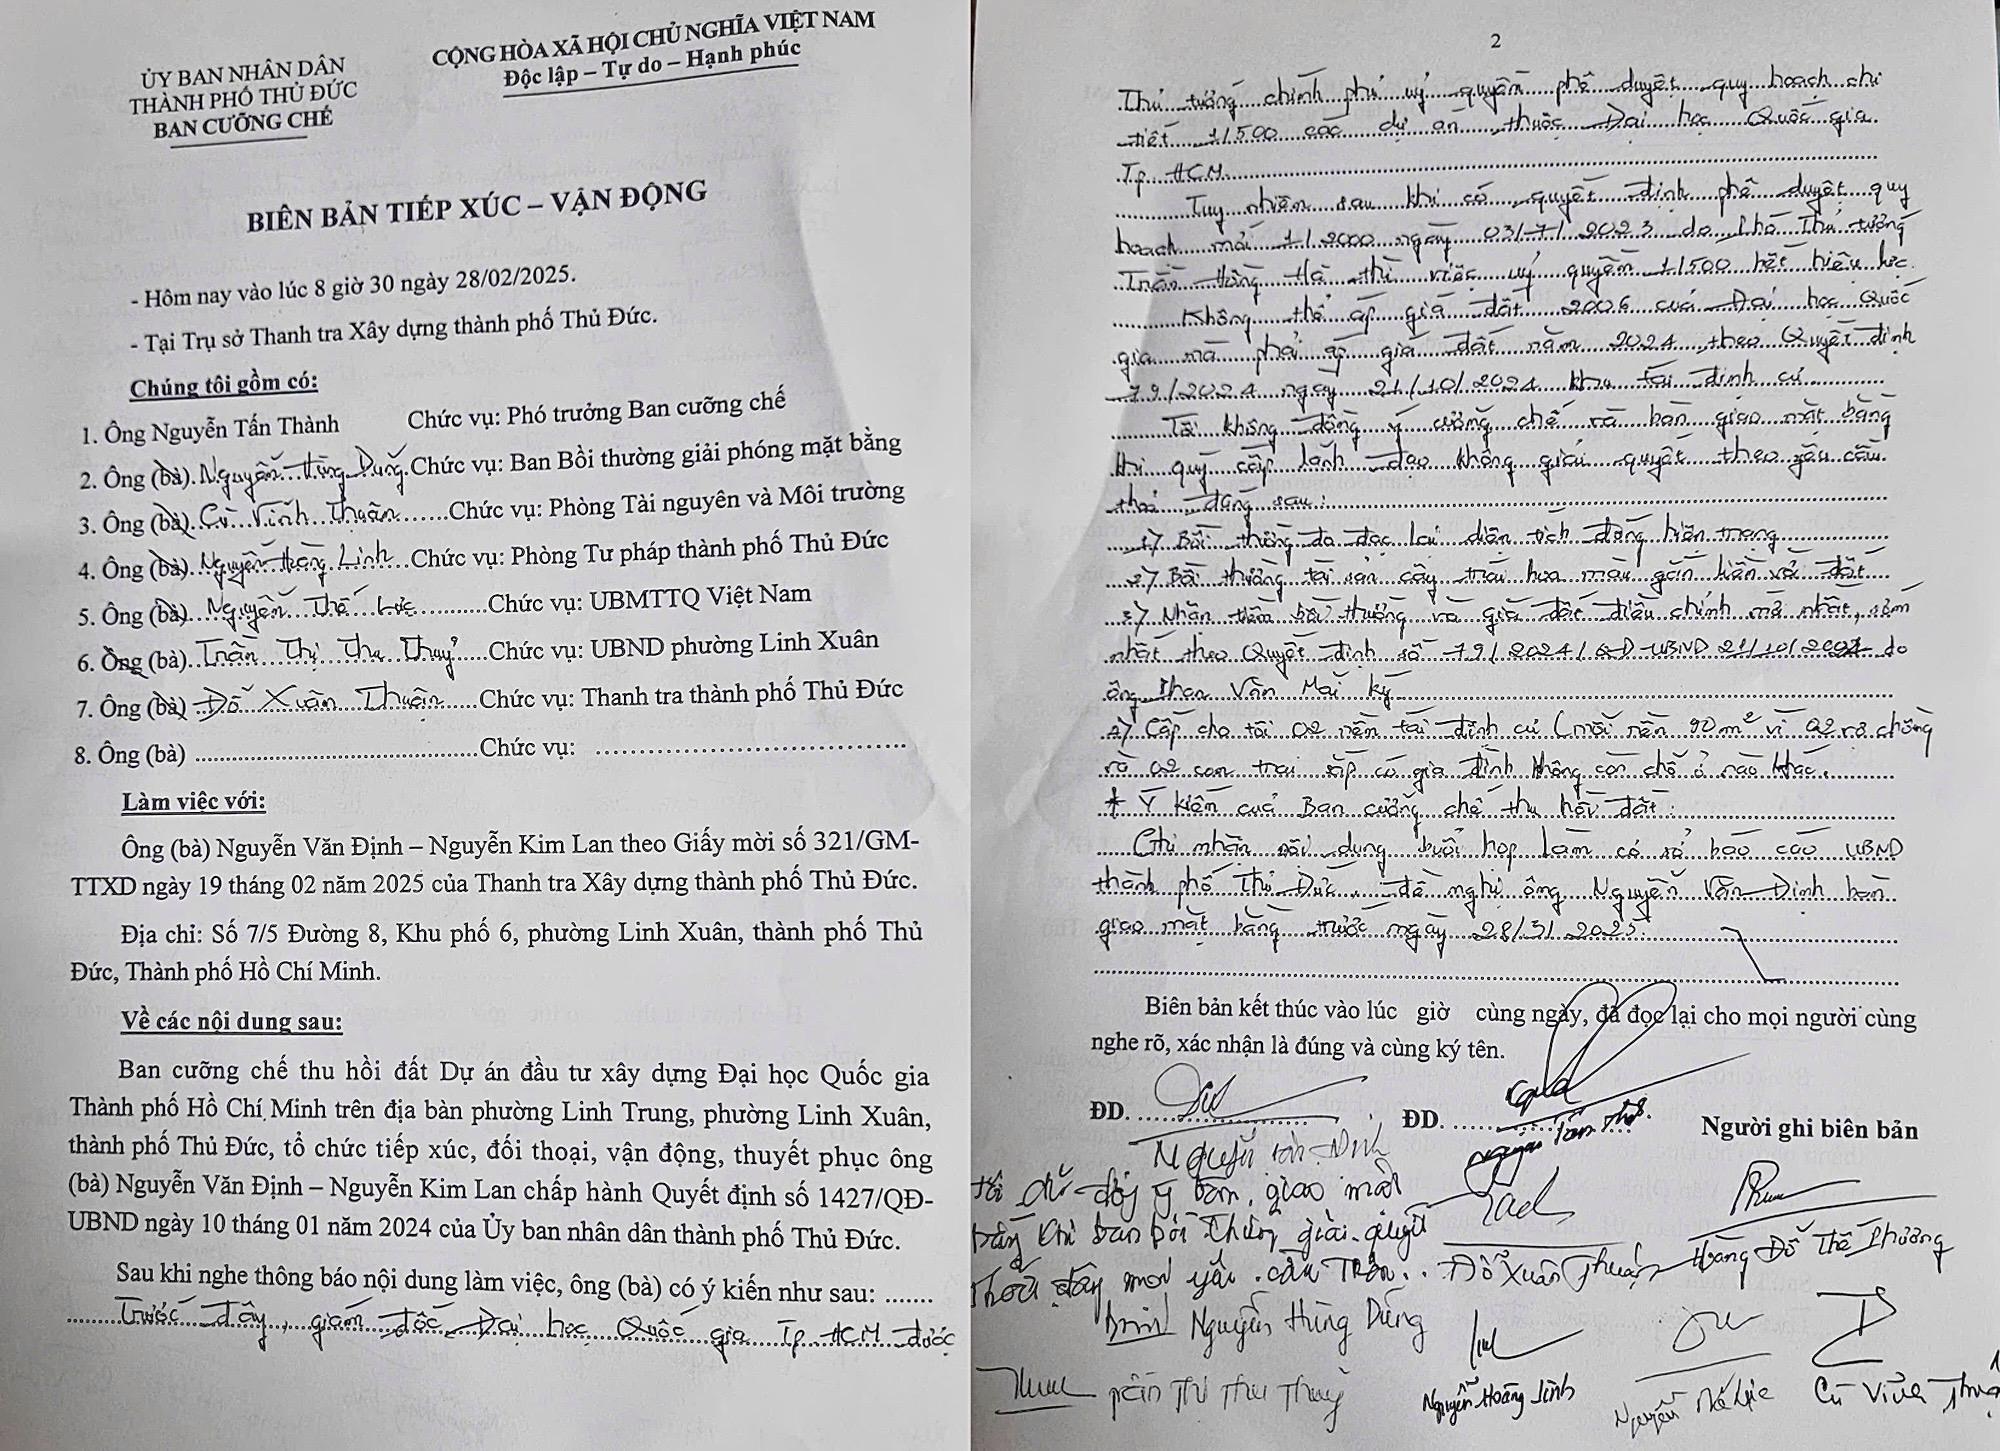 ỦY BAN NHÂN DÂN
THÀNH PHỐ THỦ ĐỨC
BAN CƯỠNG CHẾ
CỘNG HÒA XÃ HỘI CHỦ NGHĨA VIỆT NAM
Độc lập – Tự do – Hạnh phúc
BIÊN BẢN TIẾP XÚC – VẬN ĐỘNG
- Hôm nay vào lúc 8 giờ 30 ngày 28/02/2025.
- Tại Trụ sở Thanh tra Xây dựng thành phố Thủ Đức.
Chúng tôi gồm có:
1. Ông Nguyễn Tấn Thành Chức vụ: Phó trưởng Ban cưỡng chế
2. Ông (bà). Nguyễn Hùng Dũng. Chức vụ: Ban Bồi thường giải phóng mặt bằng
3. Ông (bà). Cù Vĩnh Thuận ......Chức vụ: Phòng Tài nguyên và Môi trường
4. Ông (bà). Nguyễn Hoàng Linh Chức vụ: Phòng Tư pháp thành phố Thủ Đức
5. Ông (bà). Nguyễn Thế Lực..........Chức vụ: UBMTTQ Việt Nam
6. Ông (bà). Trần Thị Thu Thuỷ.....Chức vụ: UBND phường Linh Xuân
7. Ông (bà) Đỗ Xuân Thuận.....Chức vụ: Thanh tra thành phố Thủ Đức
8. Ông (bà) ..........................................Chức vụ: ..........................................
Làm việc với:
Ông (bà) Nguyễn Văn Định – Nguyễn Kim Lan theo Giấy mời số 321/GM-
TTXD ngày 19 tháng 02 năm 2025 của Thanh tra Xây dựng thành phố Thủ Đức.
Địa chỉ: Số 7/5 Đường 8, Khu phố 6, phường Linh Xuân, thành phố Thủ
Đức, Thành phố Hồ Chí Minh.
Về các nội dung sau:
Ban cưỡng chế thu hồi đất Dự án đầu tư xây dựng Đại học Quốc gia
Thành phố Hồ Chí Minh trên địa bàn phường Linh Trung, phường Linh Xuân,
thành phố Thủ Đức, tổ chức tiếp xúc, đối thoại, vận động, thuyết phục ông
(bà) Nguyễn Văn Định – Nguyễn Kim Lan chấp hành Quyết định số 1427/QĐ-
UBND ngày 10 tháng 01 năm 2024 của Ủy ban nhân dân thành phố Thủ Đức.
Sau khi nghe thông báo nội dung làm việc, ông (bà) có ý kiến như sau: .......
Trước đây, giám đốc Đại học Quốc gia Tp HCM được
2
Thủ tướng chính phủ uỷ quyền phê duyệt quy hoạch chi
tiết 1/500 các dự án thuộc Đại học Quốc gia
Tp HCM
Tuy nhiên sau khi có quyết định phê duyệt quy
hoạch mới 1/2000 ngày 03/7/2023 do Phó Thủ tướng
Trần Hồng Hà thì việc uỷ quyền 1/500 hết hiệu lực.
Không thể áp giá đất 2006 cuả Đại học Quốc
gia mà phải áp giá đất năm 2024 theo Quyết định
79/2024 ngày 21/10/2024 khu tái định cư
Tôi không đồng ý cưỡng chế và bàn giao mặt bằng
khi quý cấp lãnh đạo không giải quyết theo yêu cầu
thoả đáng sau:
1) Bồi thường đo đạc lại diện tích đúng hiện trạng
2) Bồi thường tài sản cây trái hoa màu gắn liền với đất
3) Nhận tiền bồi thường và giá đất điều chỉnh mới nhất, sớm
nhất theo Quyết định số 79/2024/QĐ-UBND 21/10/2024 do
ông Phan Văn Mãi ký
4) Cấp cho tôi 02 nền tái định cư (mỗi nền 90m² vì 02 vợ chồng
và 02 con trai sắp có gia đình không còn chỗ ở nào khác.
* Ý kiến cuả Ban cưỡng chế thu hồi đất:
Ghi nhận nội dung buổi họp làm cơ sở báo cáo UBND
thành phố Thủ Đức, đề nghị ông Nguyễn Văn Định bàn
giao mặt bằng trước ngày 28/3/2025.
Biên bản kết thúc vào lúc giờ cùng ngày, đã đọc lại cho mọi người cùng
nghe rõ, xác nhận là đúng và cùng ký tên.
ĐD. ................ ĐD. ................ Người ghi biên bản
Nguyễn Văn Định
Nguyễn Tấn Thành
tôi chỉ đồng ý bàn giao mặt
bằng khi ban bồi thường giải quyết
thoả đáng mọi yêu cầu trên..
Đỗ Xuân Thuận
Hoàng Đỗ Thế Phương
Nguyễn Hùng Dũng
Trần Thị Thu Thuỷ
Nguyễn Hoàng Linh
Nguyễn Thế Lực
Cù Vĩnh Thuận